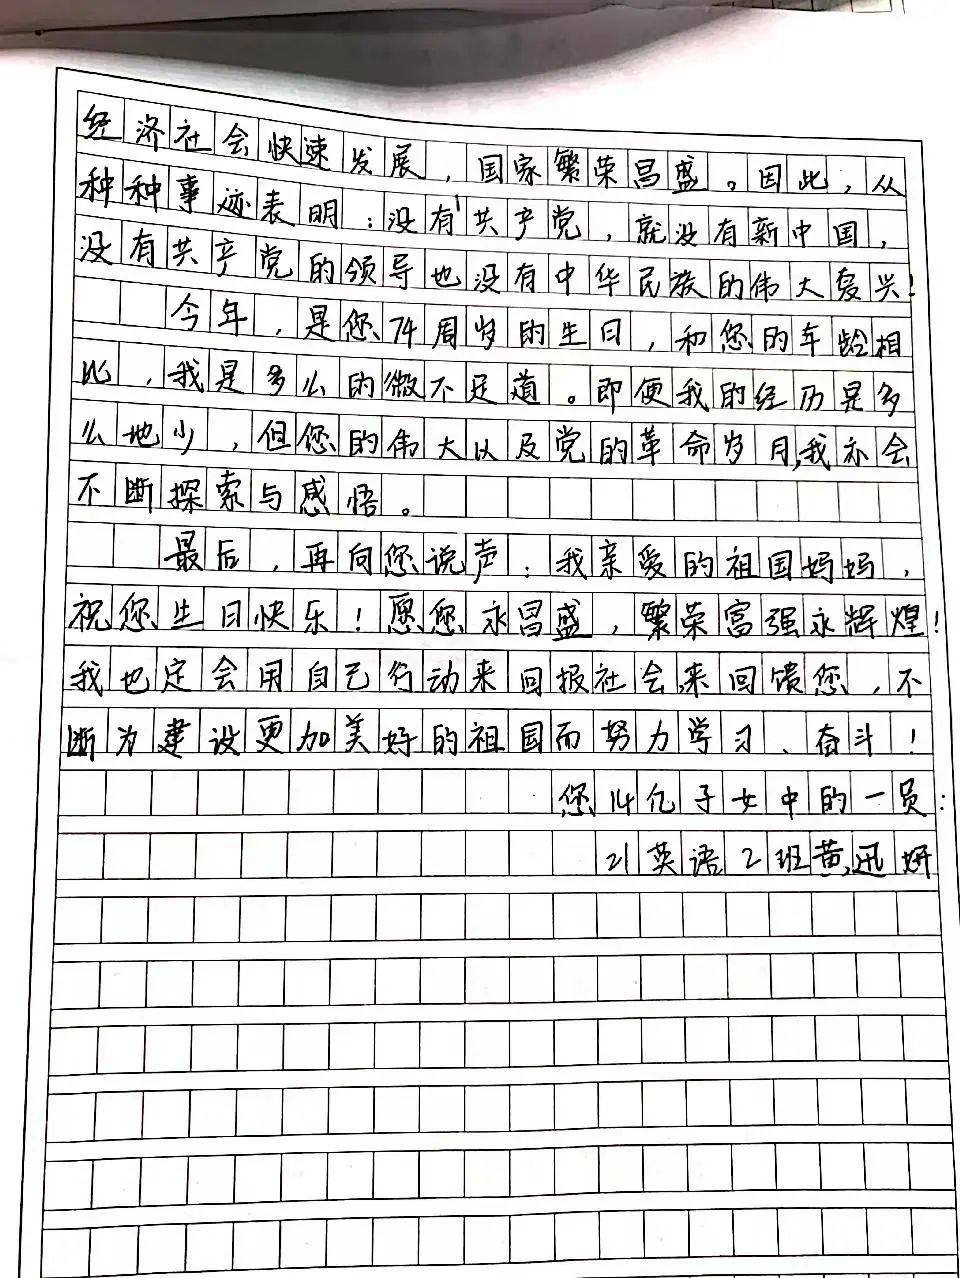 经济社会快速发展，国家繁荣昌盛。因此，从
种种事迹表明：没有共产党，就没有新中国，
没有共产党的领导也没有中华民族的伟大复兴！
今年，是您74周岁的生日，和您的年龄相
比，我是多么的微不足道。即便我的经历是多
么地少，但您的伟大以及党的革命岁月,我亦会
不断探索与感悟。
最后，再向您说声：我亲爱的祖国妈妈，
祝您生日快乐！愿您永昌盛，繁荣富强永辉煌！
我也定会用自己行动来回报社会,来回馈您，不
断为建设更加美好的祖国而努力学习、奋斗！
您14亿子女中的一员：
21英语2班黄迅妍